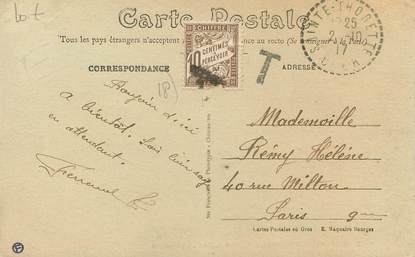 Lot
Carte Postale
Tous les pays étrangers n'acceptent au recto (Se renseigner à la Poste)
CORRESPONDANCE
ADRESSE
CHIFFRE
10 CENTIMES
À PERCEVOIR
T
SAINTE-THORETTE
25
2-10
17
CHER
(18)
d'ici
à bientôt. Sois bien sage
en attendant.
Fernand
Mademoille
Rémy Hélène
40 rue Milton
Paris 9me
Cartes Postales en Gros E. Maquaire Bourges